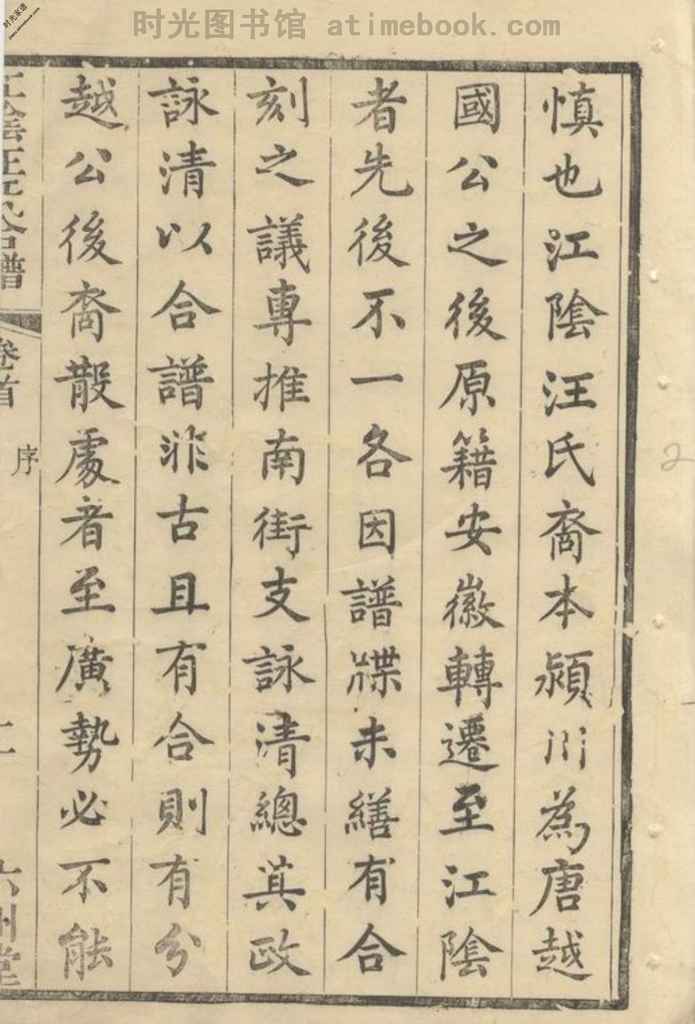 时光图书馆 atimebook.com
慎也江陰汪氏裔本潁川為唐越
國公之後原籍安徽轉遷至江陰
者先後不一各因譜牒未繕有合
刻之議專推南街支詠清總其政
詠清以合譜非古且有合則有分
越公後裔散處者至廣勢必不能
江陰汪氏合譜
卷首
序
二
六州堂